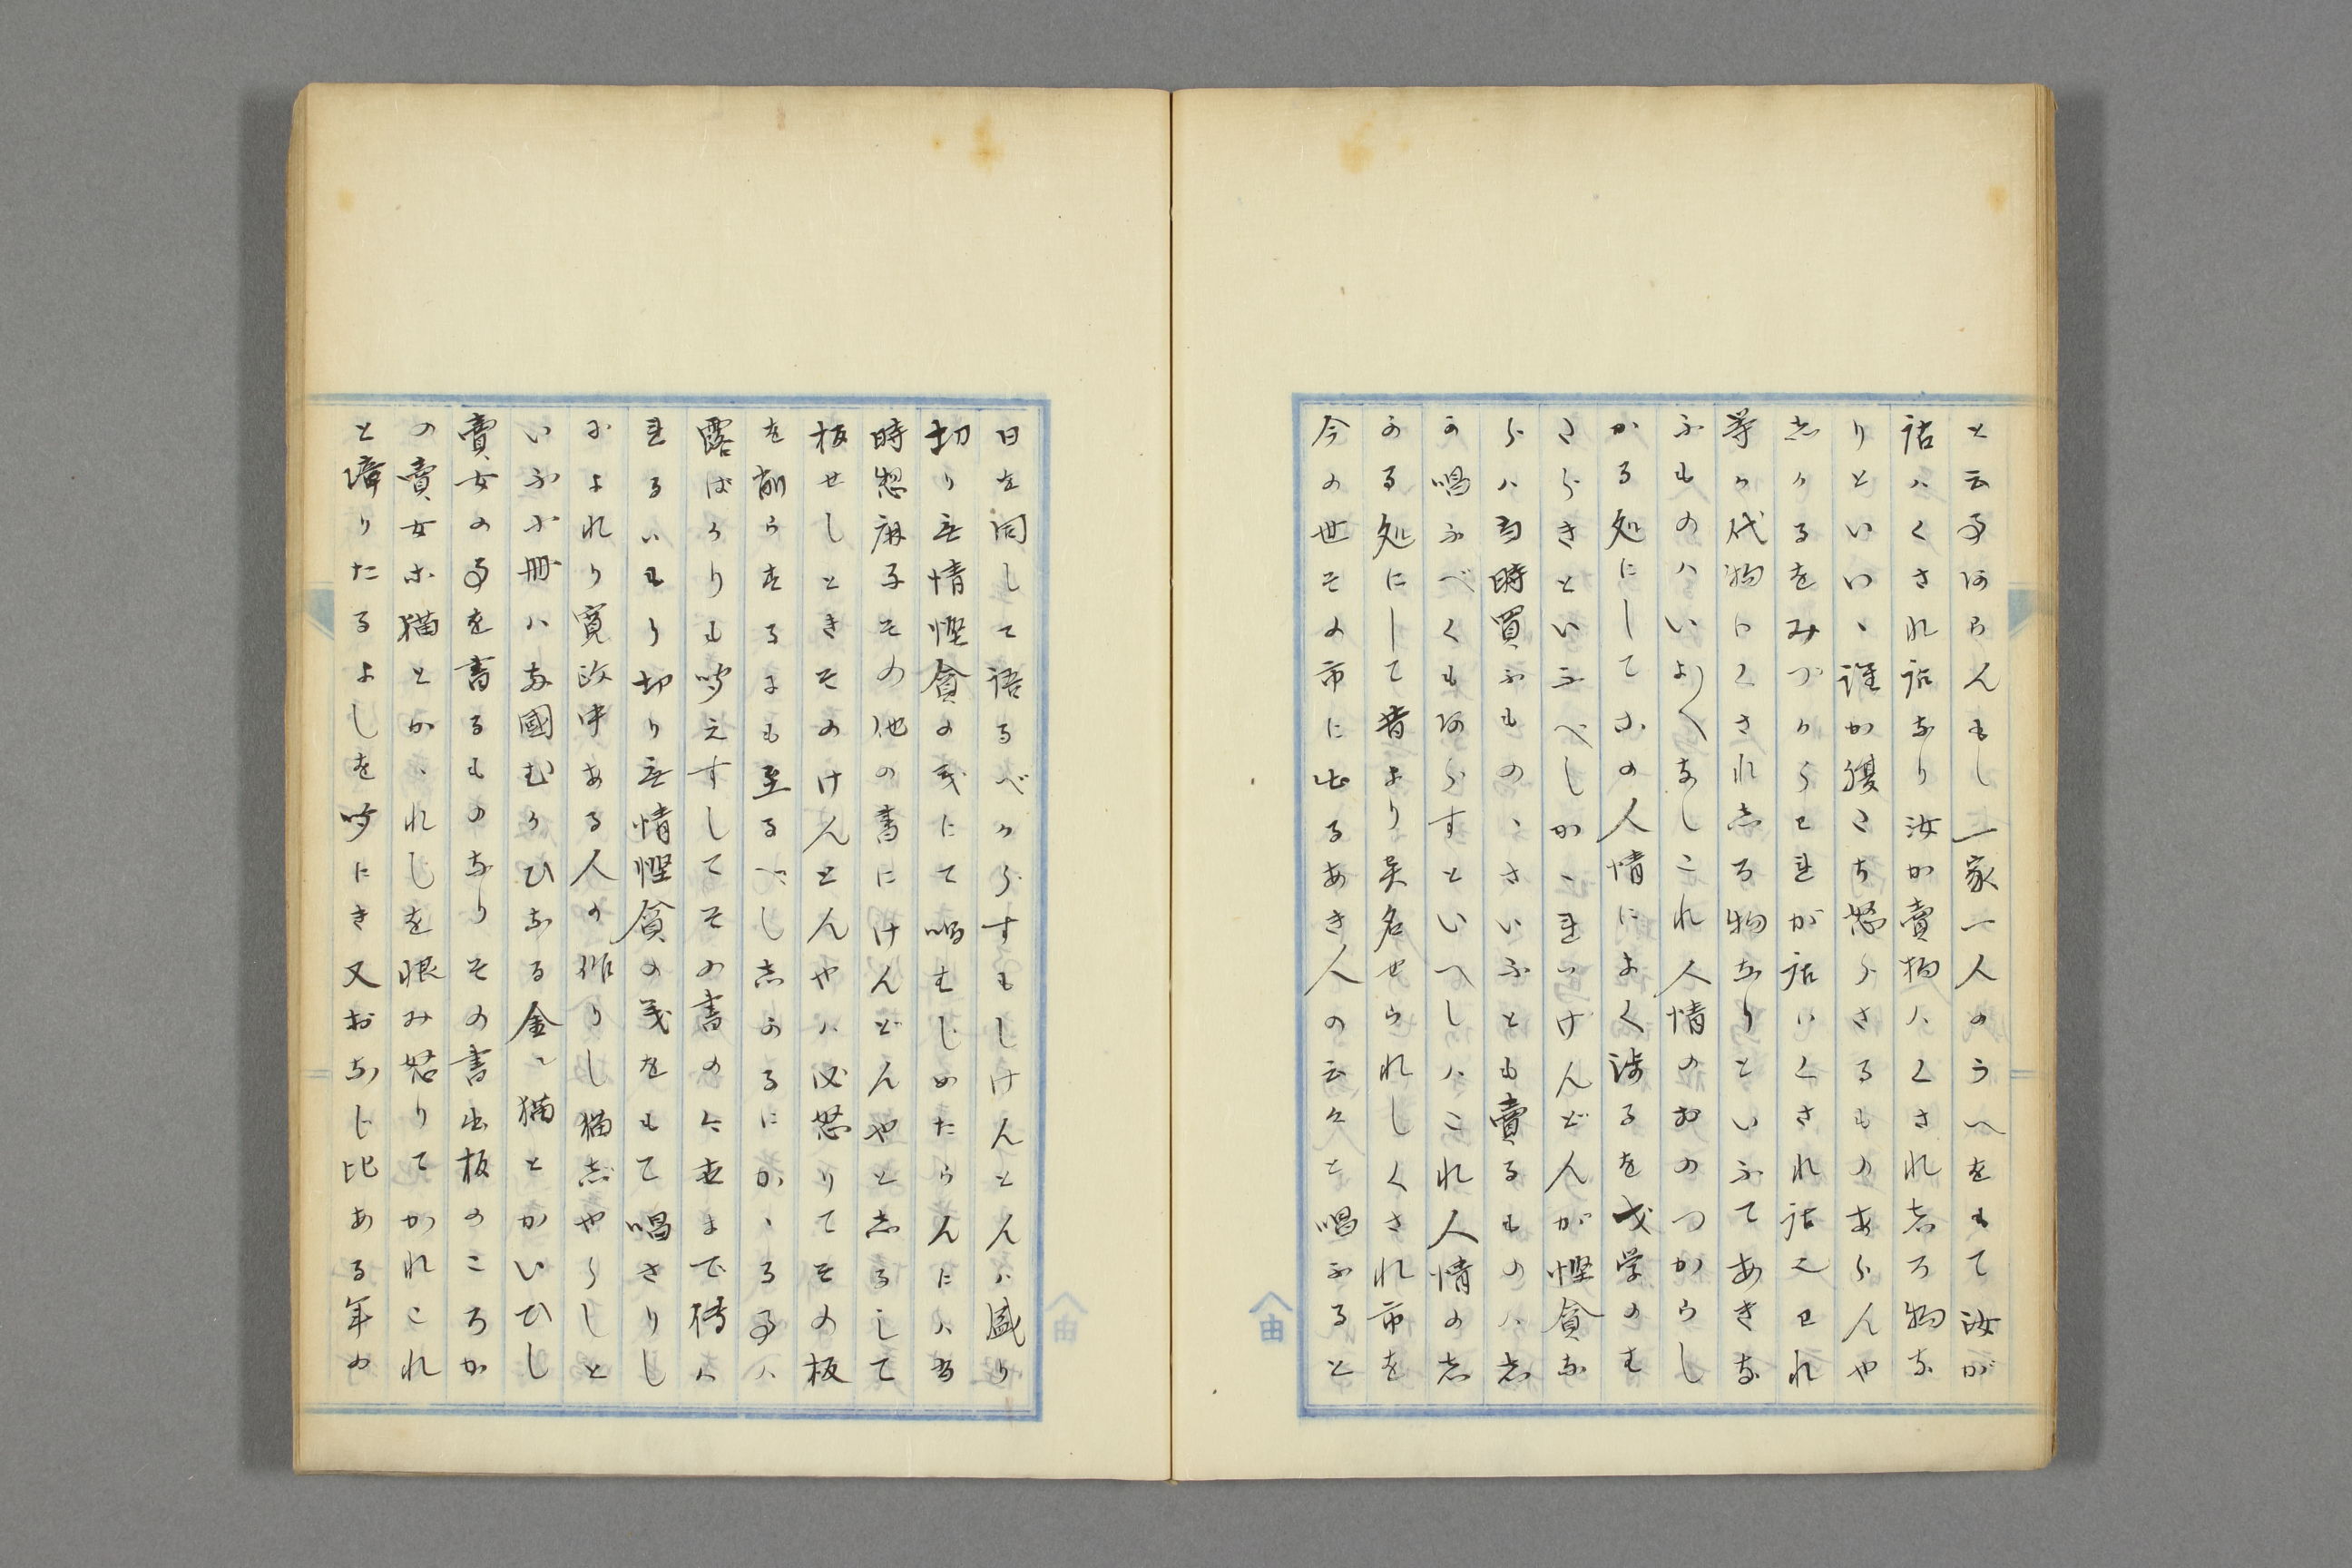 と云事あらんもし一家一人のうへをもて汝が
店ハくされ店なり汝か賣物ハくされ志ろ物な
りといいゝ誰か腹たち怒らさるものあらんや
志かるをみづからわれが店ハくされ店えわれ
等か代物ハくされ志ろ物なりといふてあきな
ふものハいよ〱なしこれ人情のおのつからし
かる処にしてこの人情によく渉るを戈学のむ
こらきといふべしかゝれハけんどんが慳貪な
らハ当時買ふものゝさいふとも賣るものハ志
か唱ふべくもあらすといへしハこれ人情の志
かる処にして昔より異名せられしくされ市を
今の世その市に出るあき人の云々と唱ふると
日を同して語るべからすもしけんとんハ盛り
切り無情慳貪の戎にて唱むじめたらんにハ当
時惣麻子その他の書にけんどんやと志るして
板せしときそのけんどんやハ必怒りてその板
を削らするまも至るへし志かるにかゝる事ハ
露ばかりも聞えすしてその書の今世まで傳ハ
れるハもり切り無情慳貪の義をもて唱さりし
によれり寛政中ある人の作りし猫志やらしと
いふ小冊ハ両國むかひなる金ゝ猫とかいひし
賣女の事を書るものなりその書出板のころか
の賣女ホ猫とかゝれしを恨み怒りてかれこれ
と障りたるよしを聞にき又おなじ比ある年の